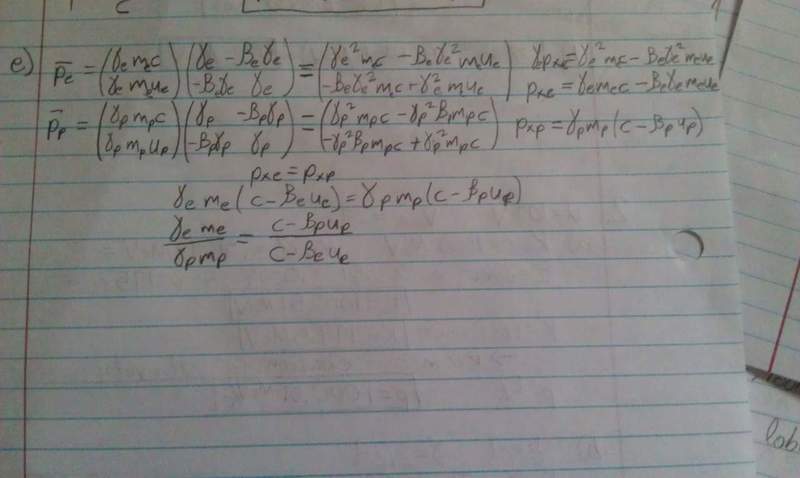 c
e) p̄e = (γe mec / γe meue) (γe -βeγe / -βeγe γe) = (γe²mec - βeγe²meue / -βeγe²mec + γe²meue) γepxe = γe²mec - βeγe²meue
pxe = γemec - βeγemeue
p̄p = (γp mpc / γp mpup) (γp -βpγp / -βpγp γp) = (γp²mpc - γp²βpmpc / -γp²βpmpc + γp²mpc) pxp = γpmp(c - βpup)
pxe = pxp
γe me (c - βe ue) = γp mp (c - βpup)
γe me / γp mp = c - βpup / c - βe ue
lab